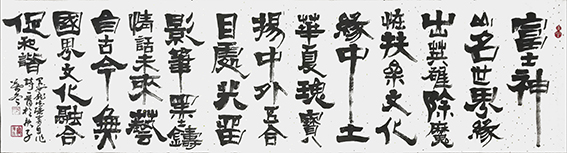 富士神
山名世界緣
出英雄除魔
恠扶桑文化
緣中土
華夏瑰寶
揚中外五合
目處光留
影筆墨鑄
情話未來藝
自古今無
國界文化融合
促和諧